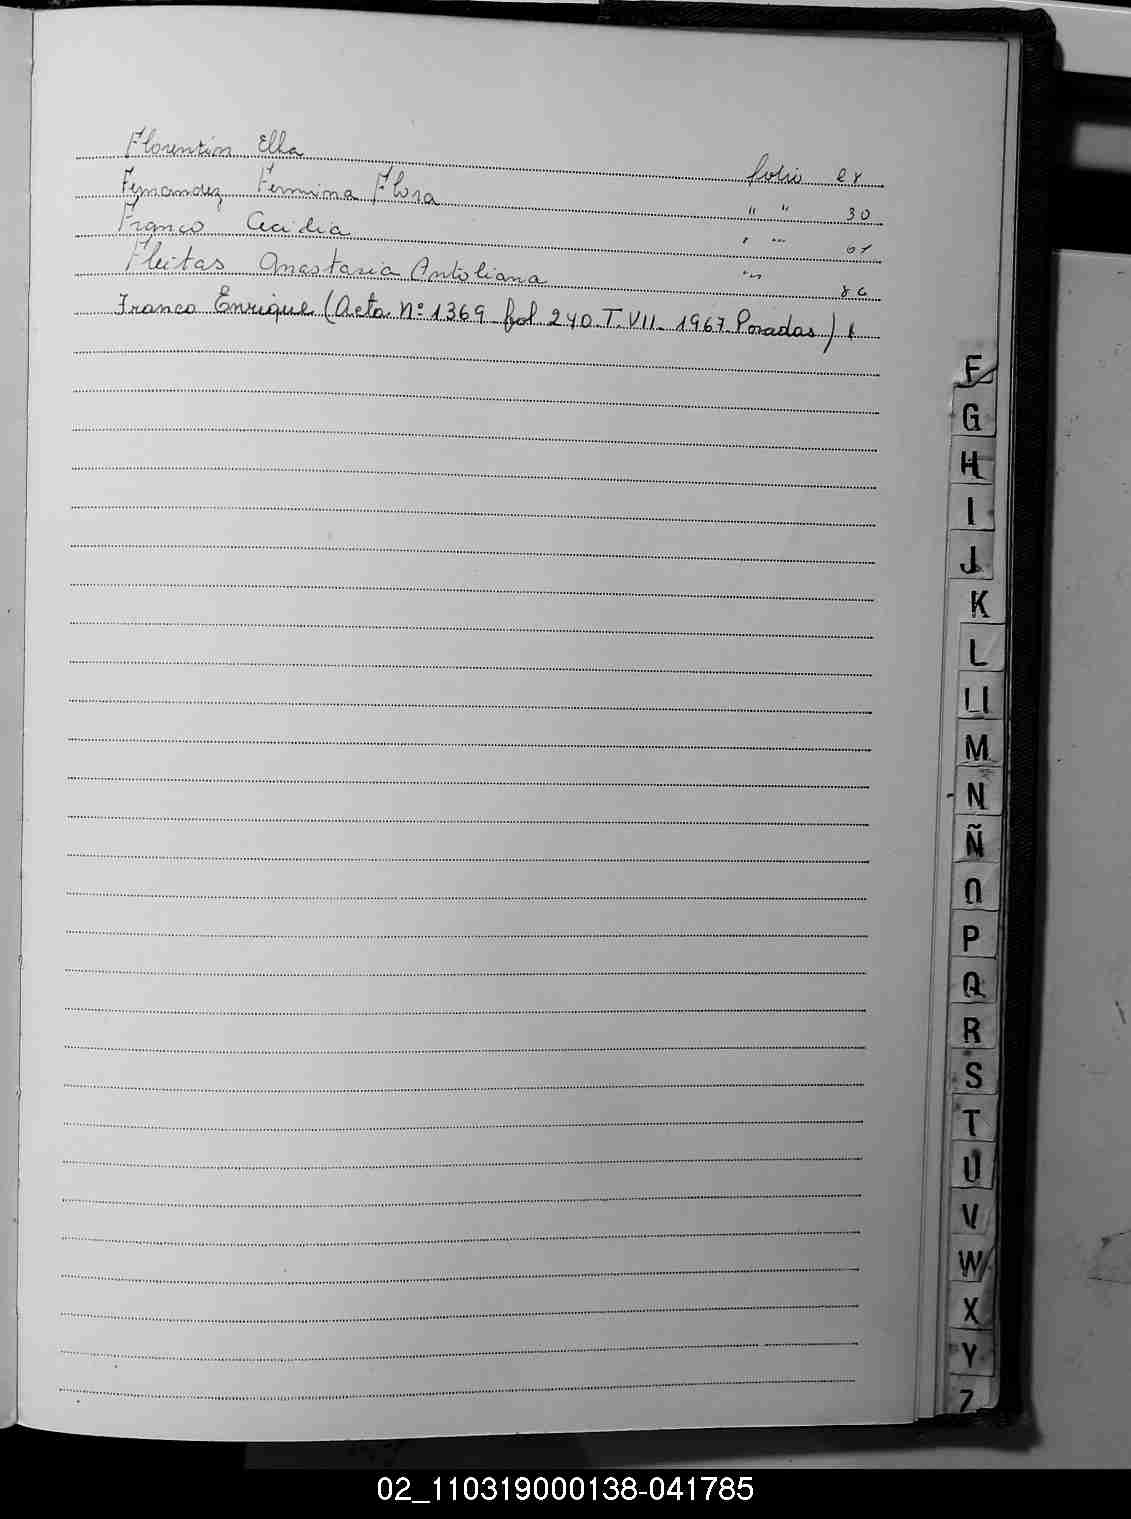 Florentin Elba folio 28
Fernandez Fermina Flora " " 30
Franco Cecidia " " 61
Fleitas Anastasia Antoliana " " 86
Franco Enrique (Acta Nº 1369 fol 240 T. VII. 1967 Posadas)
F
G
H
I
J
K
L
Ll
M
N
Ñ
O
P
Q
R
S
T
U
V
W
X
Y
Z
02_110319000138-041785